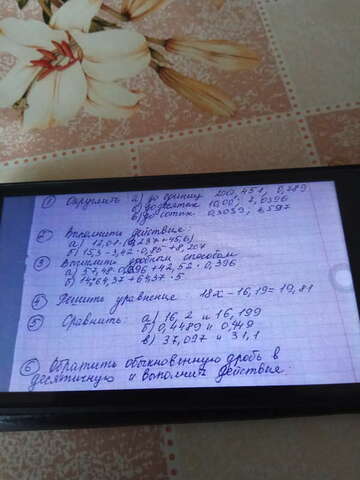 ① Округлить а) до единиц 200,451, 0,289
б) до десятых 2,0396
в) до сотых 0,3039, 6597
② Выполнить действие:
а) + 45,6)
б) 15,3 - 3,42 · 0,85 + 8,204
③ Вычислить удобным способом
а) 57,48 · 0,396 + 42,52 · 0,396
б) · 5
④ Решить уравнение: 18x - 16,19 = 19,81
⑤ Сравнить: а) 16,2 и 16,199
б) 0,4489 и 0,449
в) 37,097 и 31,1
⑥ Обратить обыкновенную дробь в
десятичную и выполнить действие: